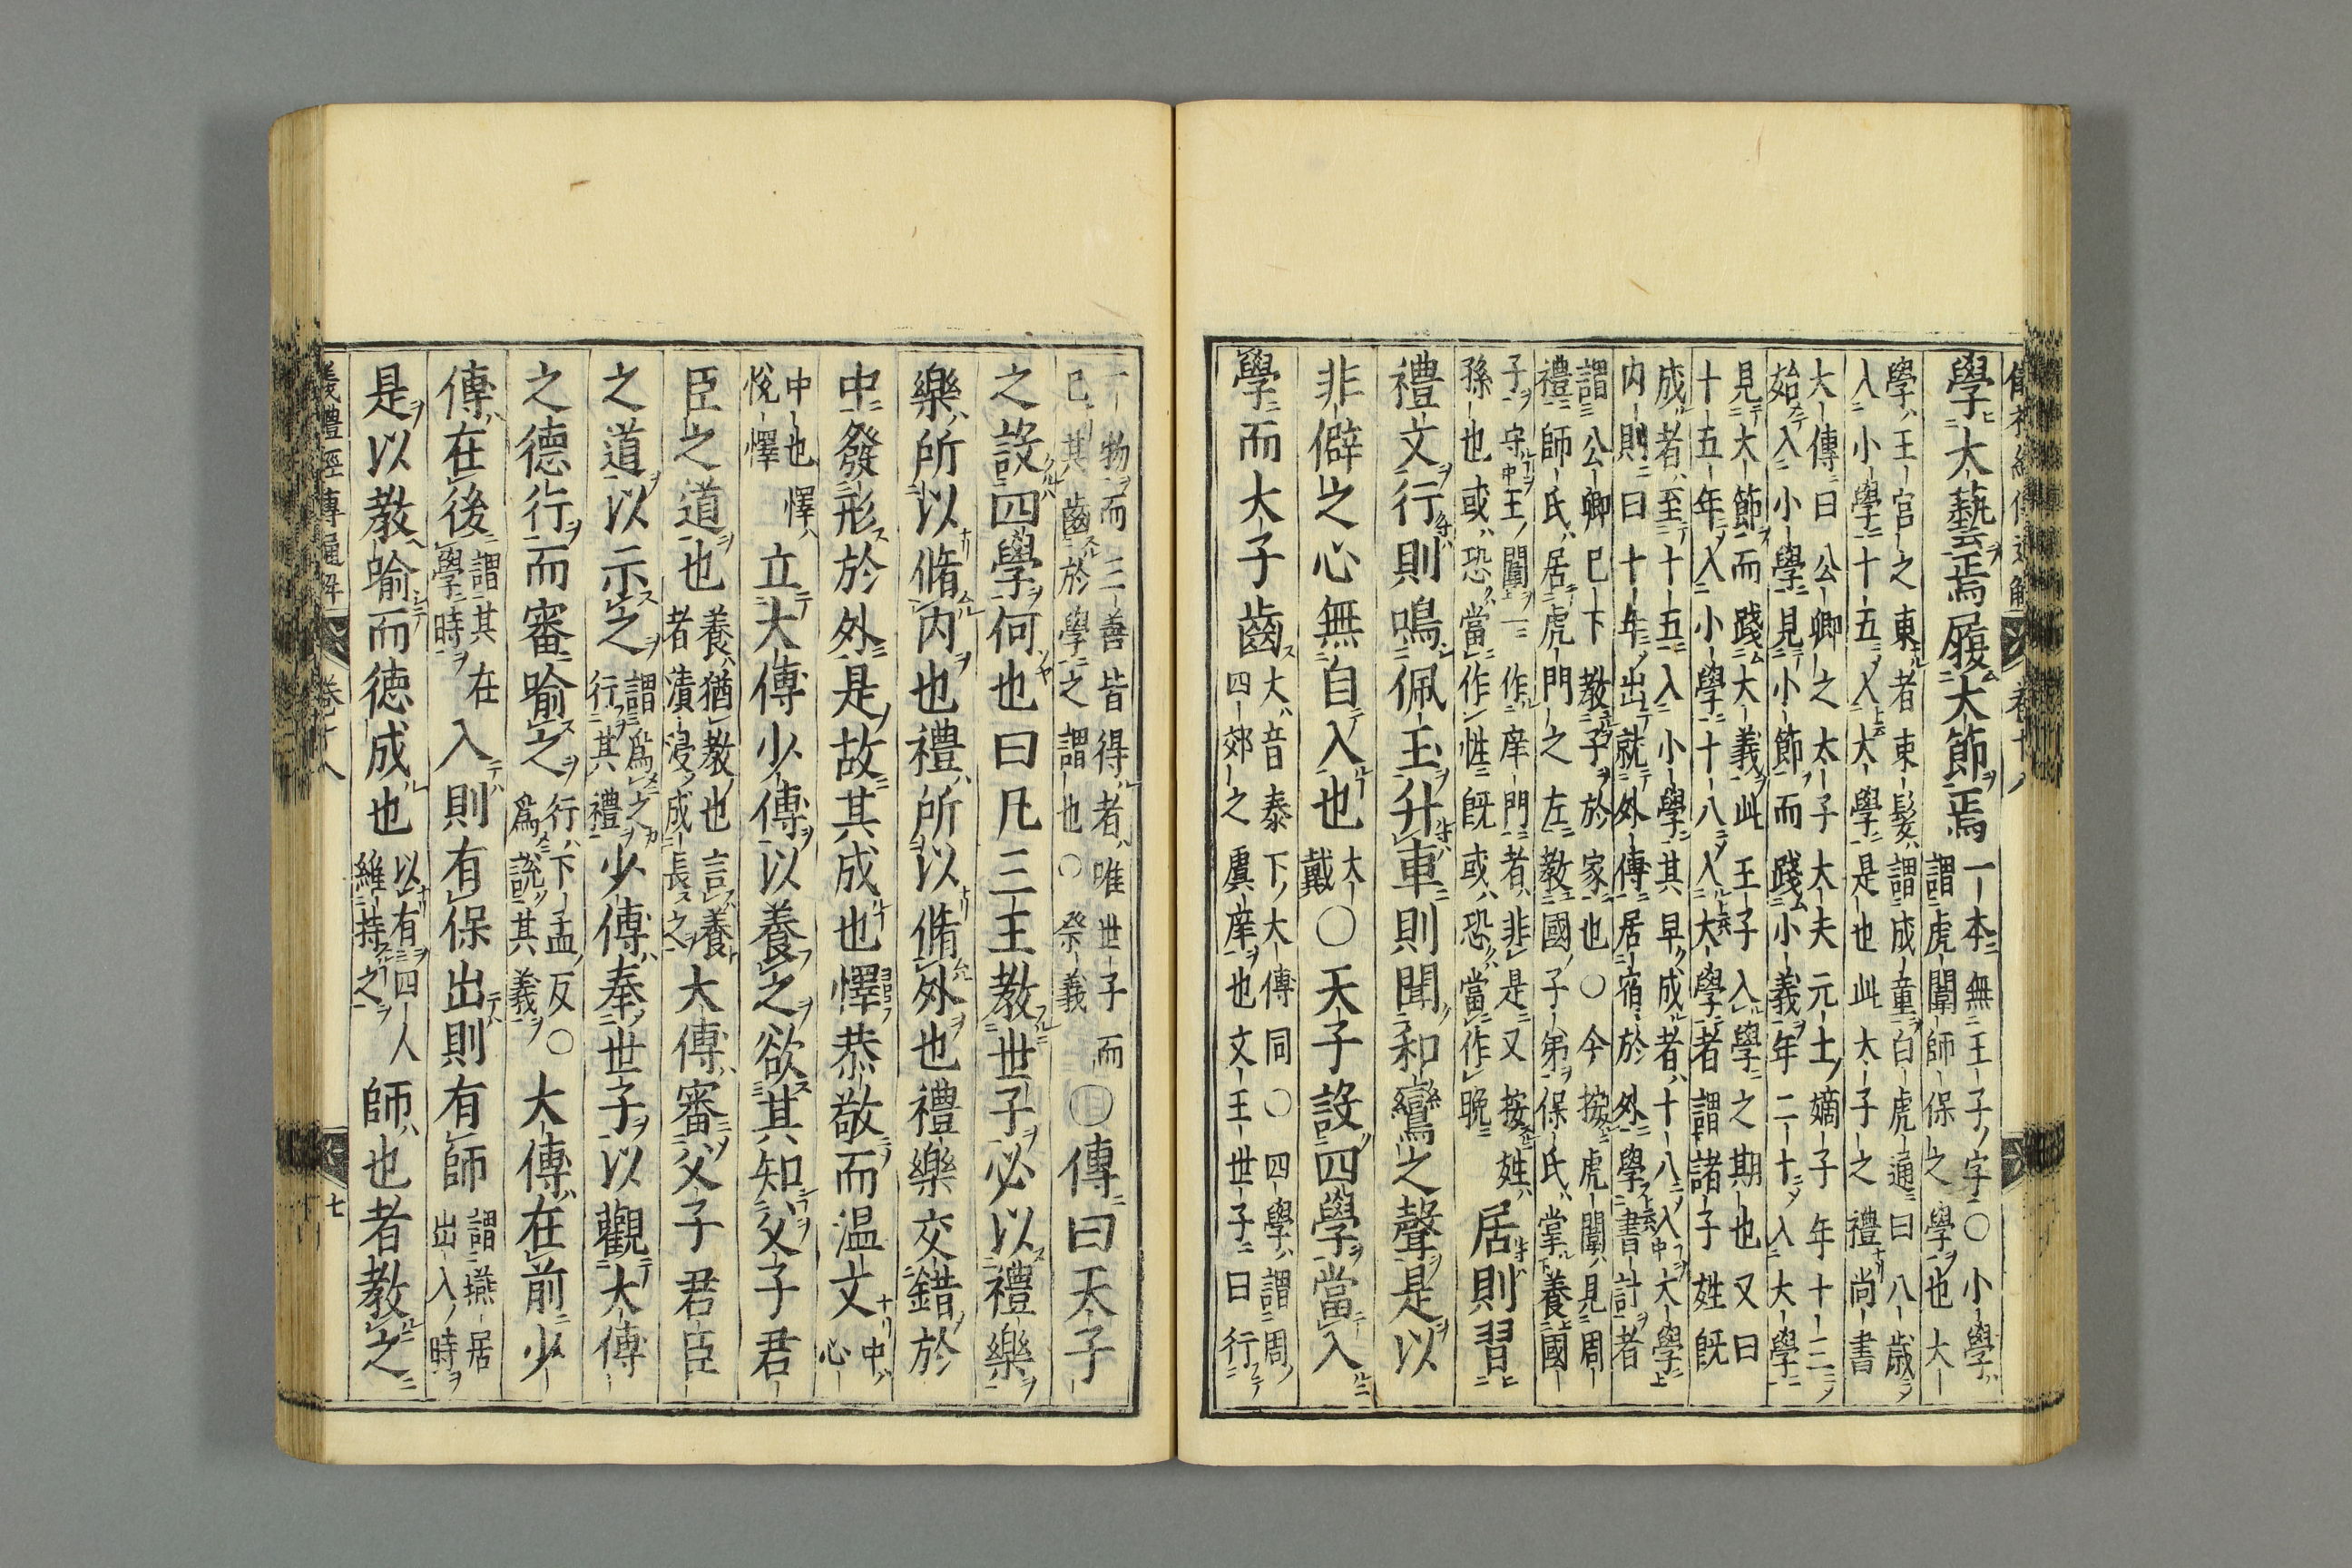 儀禮經傳通解 卷十八
學大藝焉履大節焉
一本無王子字○小學
謂虎闈師保之學也大
學王官之東者束髮謂成童白虎通曰八歳
入小學十五入大學是也此大子之禮尚書
大傳曰公卿之太子大夫元士嫡子年十三
始入小學見小節而踐小義年二十入大學
見大節而踐大義此王子入學之期也又曰
十五年入小學十八入大學者謂諸子姓既
成者至十五入小學其早成者十八入大學
内則曰十年出就外傅居宿於外學書計者
謂公卿已下教子於家也○今按虎闈見周
禮師氏居虎門之左教國子弟保氏掌養國
子守王闈一作庠門者非是又按姓
孫也或恐當作性既或恐當作晩
居則習
禮文行則鳴佩玉升車則聞和鸞之聲是以
非僻之心無自入也
大
戴
○天子設四學當入
學而大子齒
大音泰下大傅同○四學謂周
四郊之虞庠也文王世子曰行
一物而三善皆得者唯世子而
已其齒於學之謂也○祭義
○傳曰天子
之設四學何也曰凡三王教世子必以禮樂
樂所以脩内也禮所以脩外也禮樂交錯於
中發形於外是故其成也懌恭敬而温文
中
心
中也懌
悅懌
立大傅少傅以養之欲其知父子君
臣之道也
養猶教也言養
者漬浸成長之
大傅審父子君臣
之道以示之
謂爲之
行其禮
少傅奉世子以觀大傅
之德行而審喻之
行下孟反○
爲說其義
大傅在前少
傅在後
謂其在
學時
入則有保出則有師
謂燕居
出入時
是以教喻而徳成也
以有四人
維持之
師也者教之
儀禮經傳通解 卷十八 七